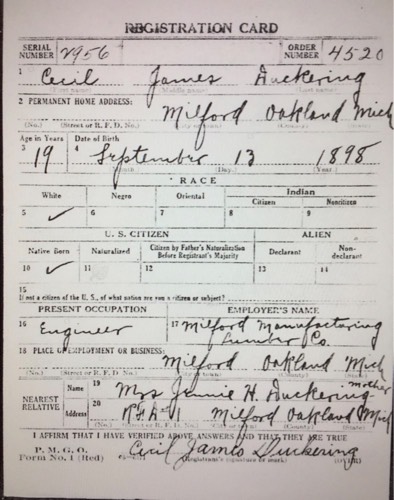 REGISTRATION CARD
SERIAL NUMBER 2956 ORDER NUMBER 4520
1 Cecil James Duckering
(First name) (Middle name) (Last name)
2 PERMANENT HOME ADDRESS:
Milford Oakland Mich
(No.) (Street or R. F. D. No.) (City or town) (County) (State)
Age in Years Date of Birth
3 19 4 September 13 1898
(Month.) (Day.) (Year.)
RACE
White Negro Oriental Indian
Citizen Noncitizen
5 ✓ 6 7 8 9
U. S. CITIZEN ALIEN
Native Born Naturalized Citizen by Father's Naturalization Before Registrant's Majority Declarant Non-declarant
10 ✓ 11 12 13 14
15
If not a citizen of the U. S., of what nation are you a citizen or subject?
PRESENT OCCUPATION EMPLOYER'S NAME
16 Engineer 17 Milford Manufacturing
Lumber Co.
18 PLACE OF EMPLOYMENT OR BUSINESS:
Milford Oakland Mich
(No.) (Street or R. F. D. No.) (City or town) (County) (State)
NEAREST RELATIVE Name 19 Mrs Jennie H. Duckering Mother
Address 20 Milford Oakland Mich
(No.) (Street or R. F. D. No.) (City or town) (County) (State)
I AFFIRM THAT I HAVE VERIFIED ABOVE ANSWERS AND THAT THEY ARE TRUE
P. M. G. O.
Form No. 1 (Red) Cecil James Duckering
(Registrant's signature or mark) (OVER)